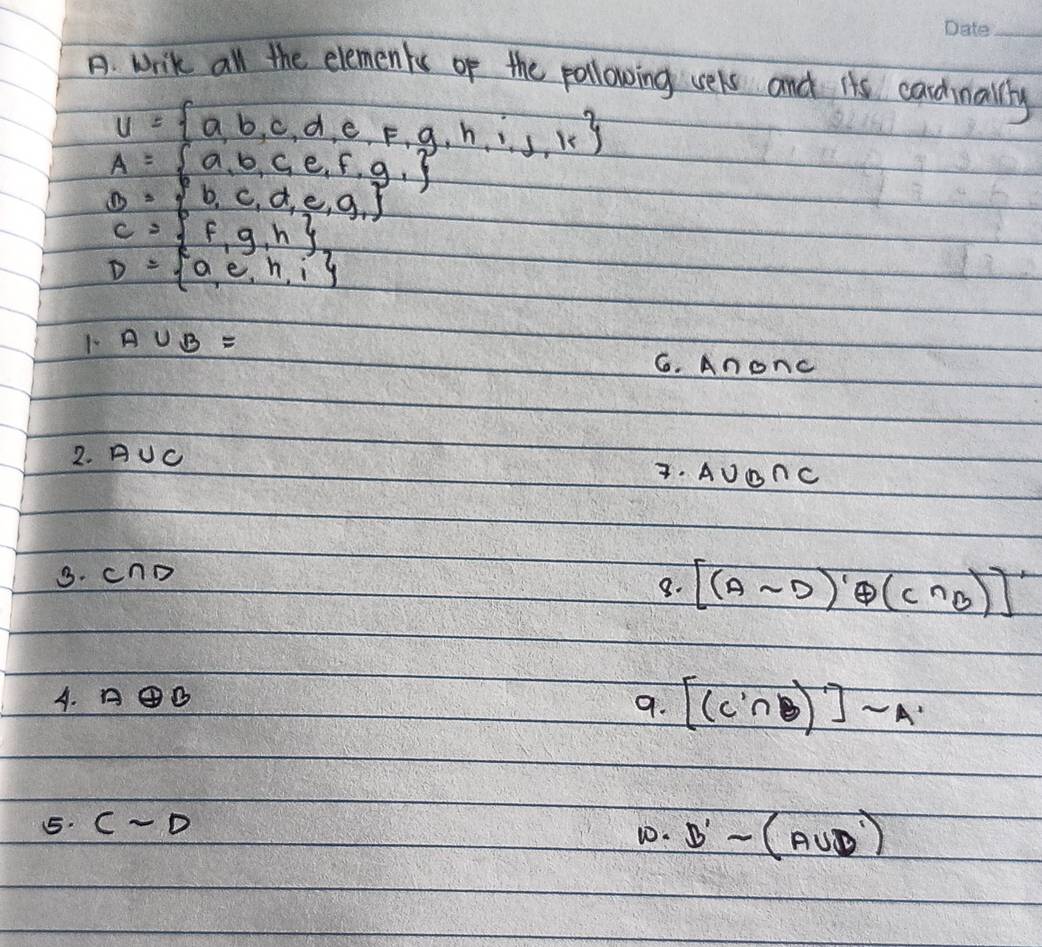 Date
A. Write all the elements of the following sets and its cardinality
U = {a, b, c, d, e, F, g, h, i, j, k}
A = {a, b, c, e, f, g, }
B = {b, c, d, e, g, }
C = {F, g, h}
D = {a, e, h, i}
1. A ∪ B =
2. A ∪ C
3. C ∩ D
4. A ⊕ B
5. C ~ D
6. A ∩ B ∩ C
7. A ∪ B ∩ C
8. [(A ~ D)' ⊕ (C ∩ B)]'
9. [(C' ∩ B)'] ~ A'
10. B' ~ (A ∪ D')